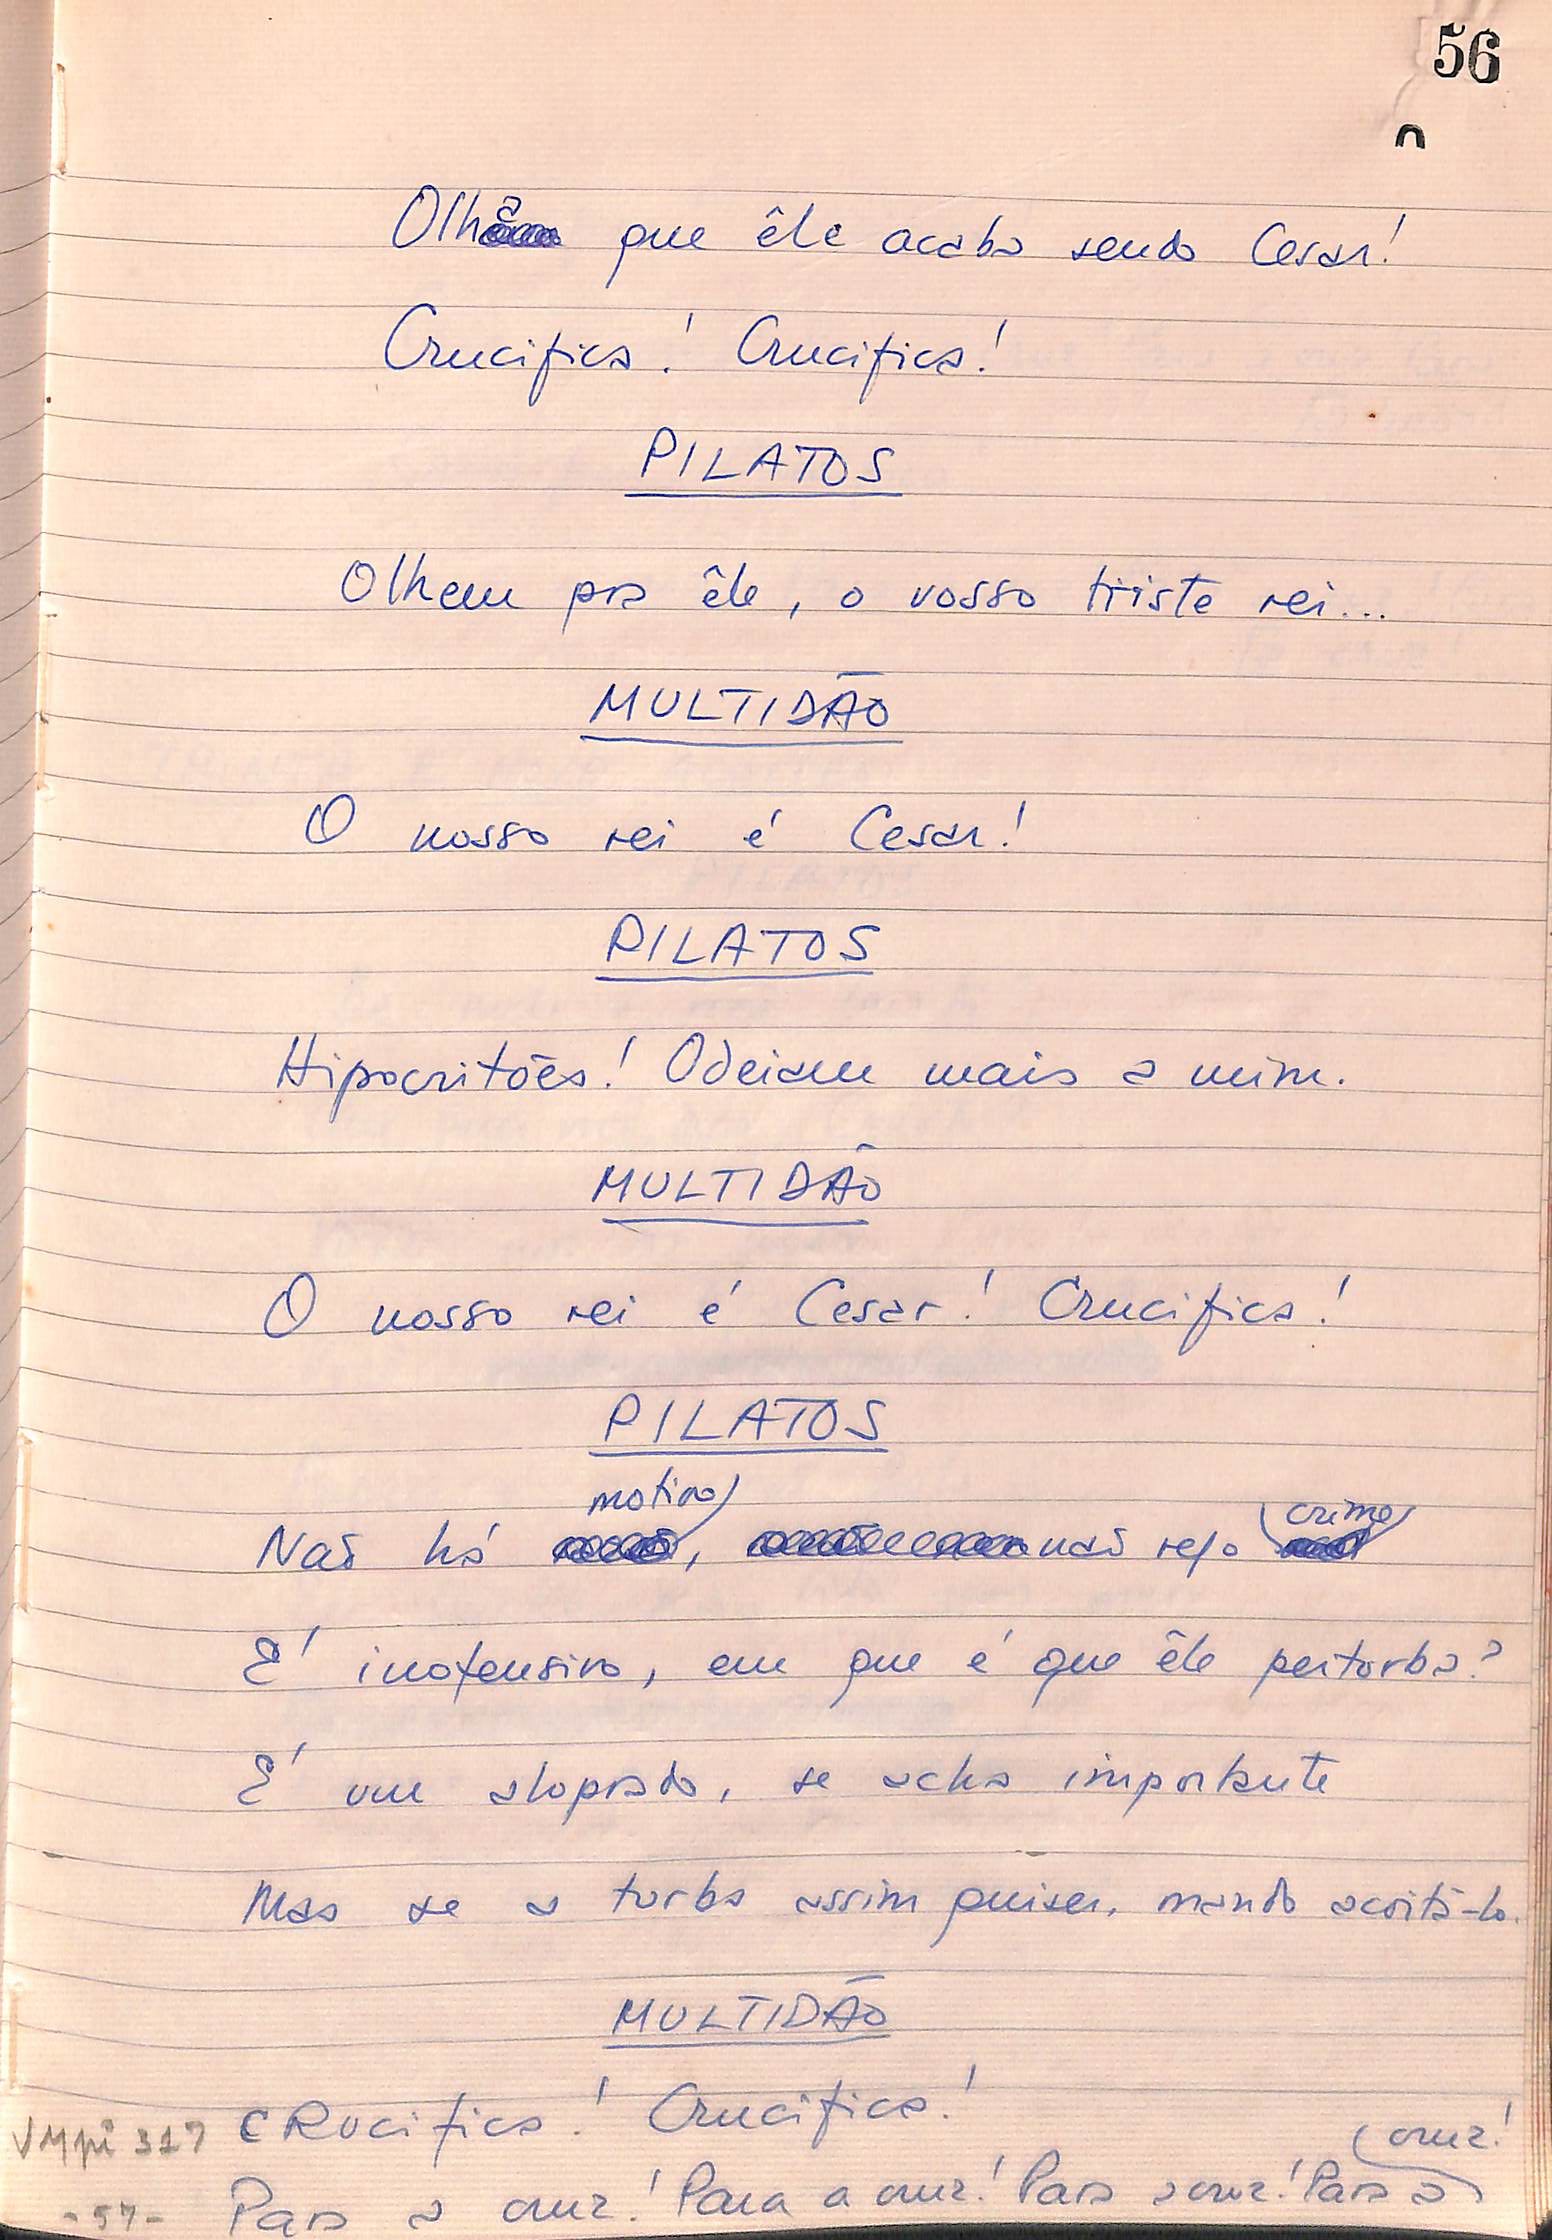 56
Olha que êle acaba sendo Cesar!
Crucifica! Crucifica!
PILATOS
Olhem pra êle, o vosso triste rei...
MULTIDÃO
O nosso rei é Cesar!
PILATOS
Hipocritões! Odeiam mais a mim.
MULTIDÃO
O nosso rei é Cesar! Crucifica!
PILATOS
Não há motivo, não vejo crime
É inofensivo, em que é que êle perturba?
É um aloprado, se acha importante
Mas se a turba assim quiser, mando açoitá-lo.
MULTIDÃO
CRucifica! Crucifica!
Para a cruz! Para a cruz! Para a cruz! Para a cruz!
VMpi 317
-57-